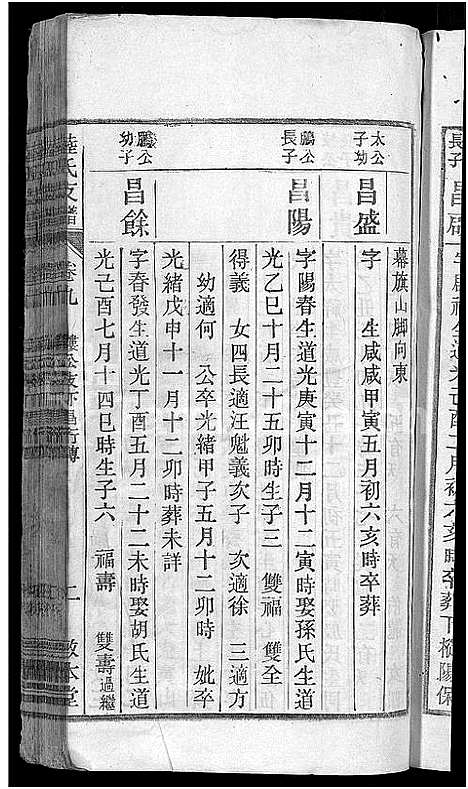 長子
昌啟
墓旗山脚向東
太公幼子
昌盛
字　生咸咸甲寅五月初六亥時卒葬
鵬公長子
昌陽
字陽春生道光庚寅十二月十二寅時娶孫氏生道
光乙巳十月二十五卯時生子三　雙福　雙全
得義　女四長適汪魁義次子　次適徐　三適方
幼適何　公卒光緒甲子五月十二卯時　妣卒
光緒戊申十一月十二卯時葬未詳
鵬公幼子
昌餘
字春發生道光丁酉五月二十二未時娶胡氏生道
光己酉七月十四巳時生子六　福壽　雙壽過繼
陸氏支譜　卷九　公支下昌行傳　二　敦本堂